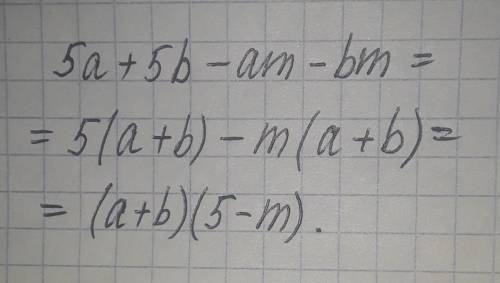 5a + 5b - am - bm =
= 5(a + b) - m(a + b) =
= (a + b)(5 - m).